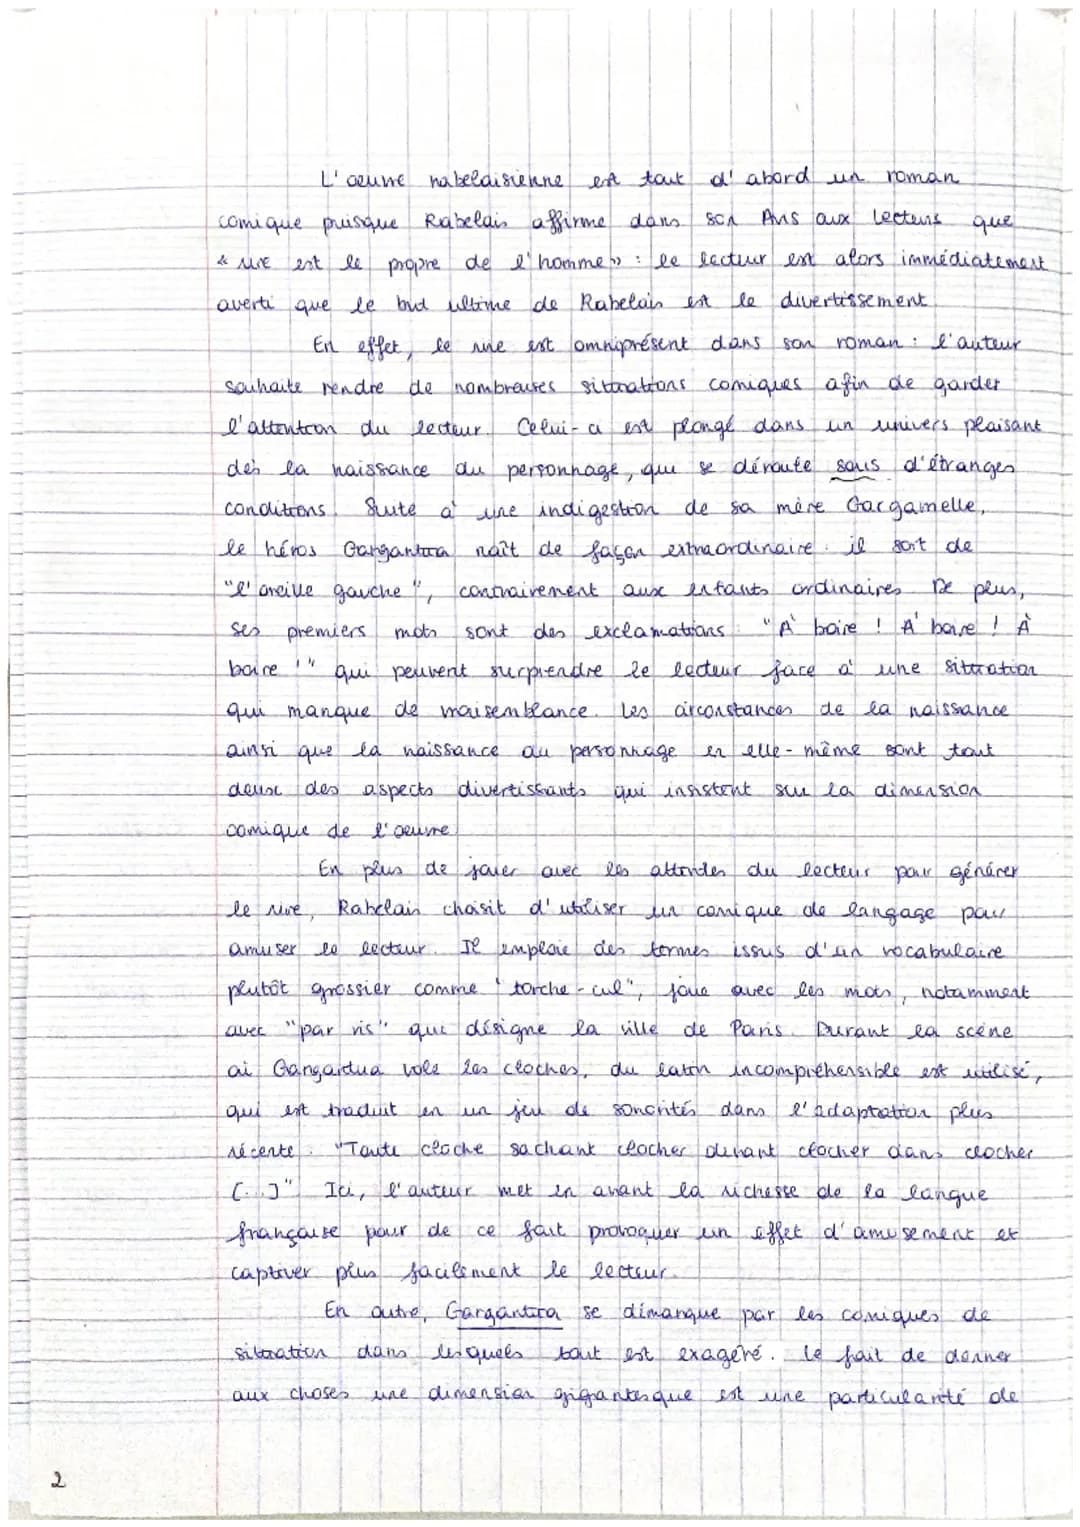 L'œuvre rabelaisienne est tout d'abord un roman
comique puisque Rabelais affirme dans son Avis aux lecteurs que
« rire est le propre de l'homme » : le lecteur est alors immédiatement
averti que le but ultime de Rabelais est le divertissement.
En effet, le rire est omniprésent dans son roman : l'auteur
souhaite rendre de nombreuses situations comiques afin de garder
l'attention du lecteur. Celui-ci est plongé dans un univers plaisant
dès la naissance du personnage, qui se déroule sous d'étranges
conditions. Suite à une indigestion de sa mère Gargamelle,
le héros Gargantua naît de façon extraordinaire : il sort de
"l'oreille gauche", contrairement aux enfants ordinaires. De plus,
ses premiers mots sont des exclamations : "À boire ! À boire ! À
boire !" qui peuvent surprendre le lecteur face à une situation
qui manque de vraisemblance. Les circonstances de la naissance
ainsi que la naissance du personnage en elle-même sont tout
deux des aspects divertissants qui insistent sur la dimension
comique de l'œuvre.
En plus de jouer avec les attentes du lecteur pour générer
le rire, Rabelais choisit d'utiliser un comique de langage pour
amuser le lecteur. Il emploie des termes issus d'un vocabulaire
plutôt grossier comme "torche-cul", joue avec les mots, notamment
avec "par ris" qui désigne la ville de Paris. Durant la scène
où Gargantua vole les cloches, du latin incompréhensible est utilisé,
qui est traduit en un jeu de sonorités dans l'adaptation plus
récente : "Toute cloche sachant clocher devant clocher dans clocher
[...]" Ici, l'auteur met en avant la richesse de la langue
française pour de ce fait provoquer un effet d'amusement et
captiver plus facilement le lecteur.
En outre, Gargantua se démarque par les comiques de
situation dans lesquels tout est exagéré. Le fait de donner
aux choses une dimension gigantesque est une particularité de
2